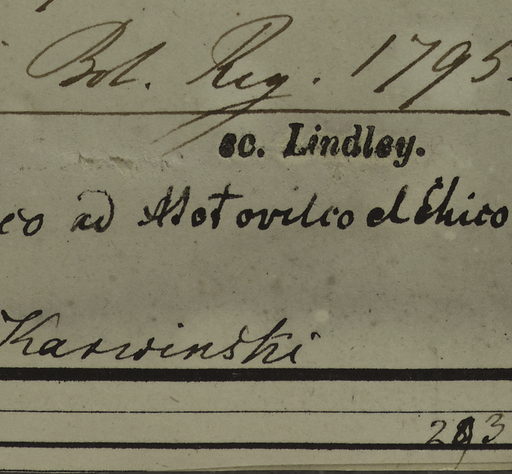 Bot. Reg. 1795.
ec. Lindley.
co ad Motovilco el Chico
Karwinski